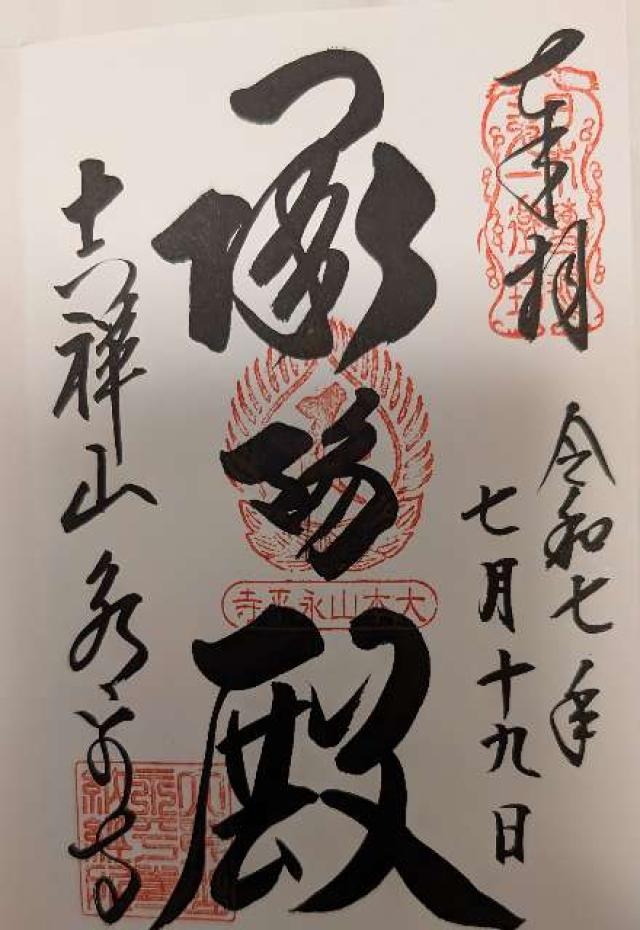 奉拝
令和七年
七月十九日
承陽殿
大本山永平寺
吉祥山永平寺